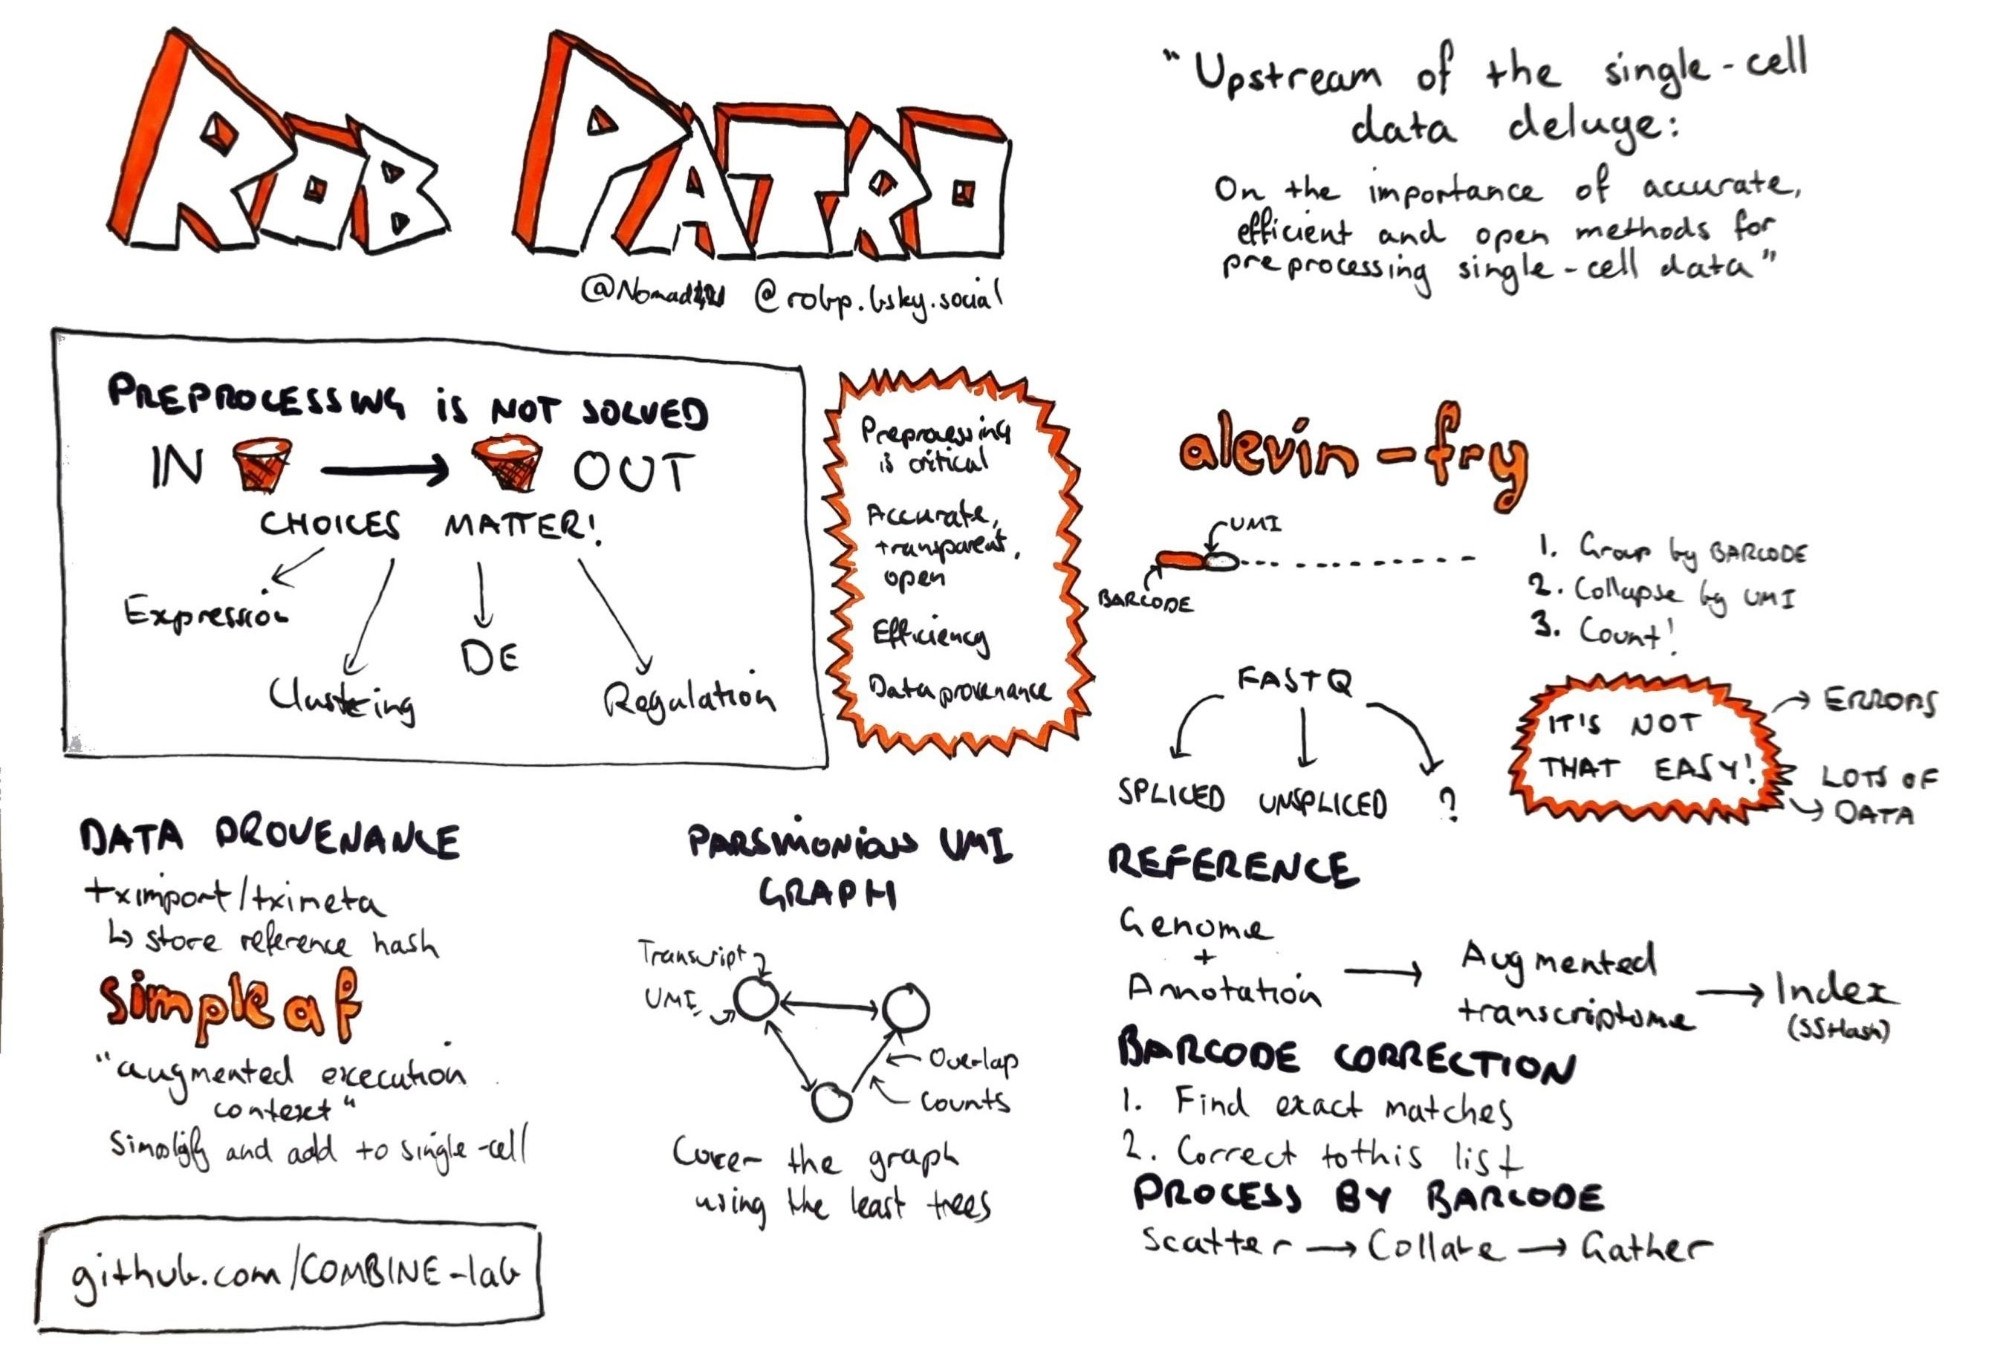 ROB PATRO
@robp.bsky.social
"Upstream of the single-cell
data deluge:
On the importance of accurate,
efficient and open methods for
preprocessing single-cell data"
PREPROCESSING is NOT SOLVED
IN → OUT
CHOICES MATTER!
Expression
Clustering
DE
Regulation
Preprocessing
is critical
Accurate,
transparent,
open
Efficiency
Data provenance
alevin-fry
UMI
BARCODE
1. Group by BARCODE
2. Collapse by UMI
3. Count!
FASTQ
SPLICED UNSPLICED ?
IT'S NOT
THAT EASY!
→ ERRORS
LOTS OF
→ DATA
DATA PROVENANCE
tximport/tximeta
↳ store reference hash
simpleaf
"augmented execution
context"
Simplify and add to single-cell
github.com/COMBINE-lab
PARSIMONIOUS UMI
GRAPH
Transcript
UMI
Overlap
Counts
Cover the graph
using the least trees
REFERENCE
Genome
+
Annotation
→ Augmented
transcriptome
→ Index
(SSHash)
BARCODE CORRECTION
1. Find exact matches
2. Correct to this list
PROCESS BY BARCODE
Scatter → Collate → Gather